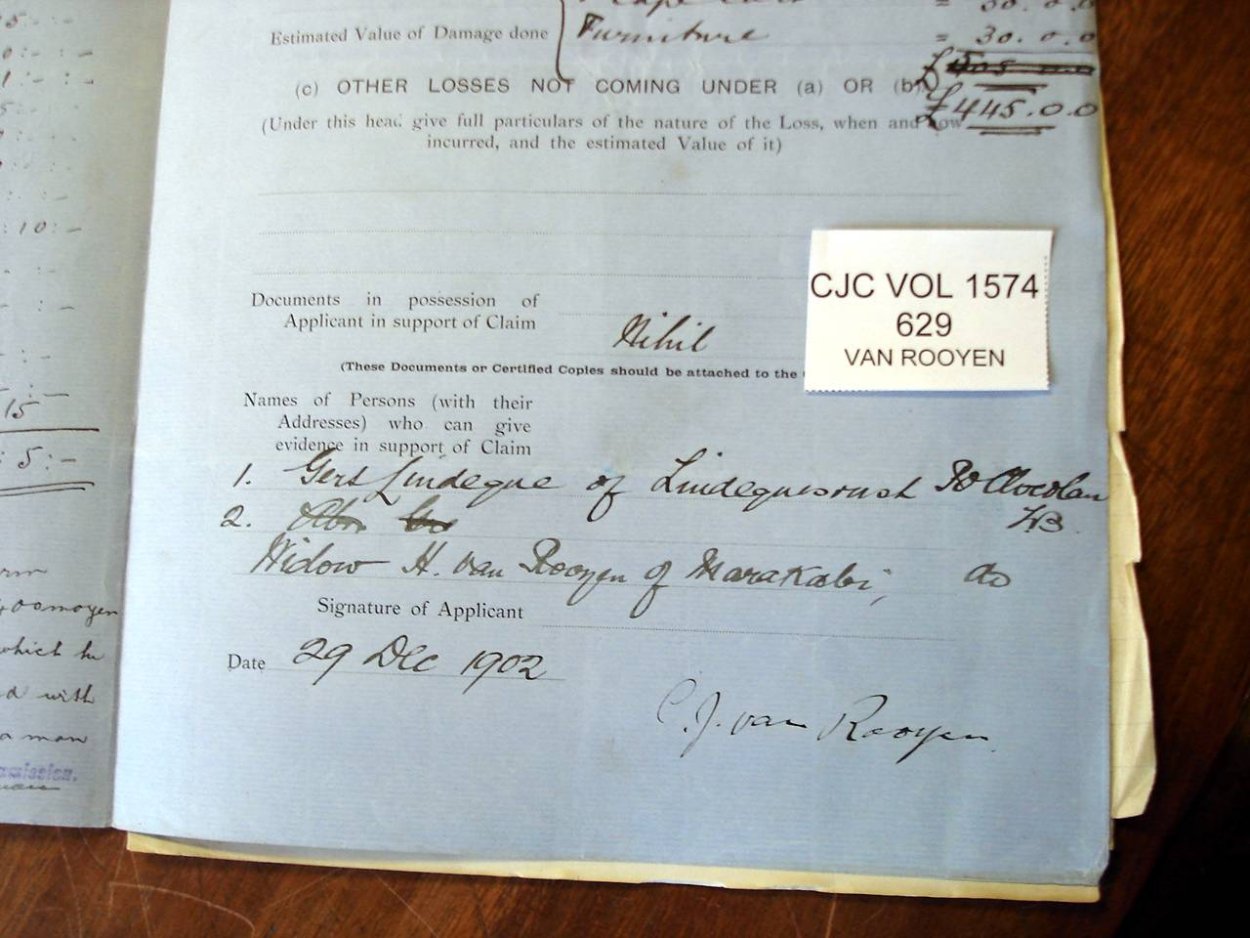 5 :
0 : - : -
1 : - : -
: 10 : -
: -
15
: 5 : -
which he
d with
a man
mission.
= 30. 0. 0
Estimated Value of Damage done
Furniture = 30. 0. 0
(c) OTHER LOSSES NOT COMING UNDER (a) OR (b)
£445. 0. 0
(Under this head give full particulars of the nature of the Loss, when and how
incurred, and the estimated Value of it)
Documents in possession of
Applicant in support of Claim
Nihil
(These Documents or Certified Copies should be attached to the
CJC VOL 1574
629
VAN ROOYEN
Names of Persons (with their
Addresses) who can give
evidence in support of Claim
1. Gert Lindeque of Lindequesrust PO Clocolan
2.
Widow H. van Rooyen of Marakabi, do
Signature of Applicant
Date 29 Dec 1902
C. J. van Rooyen.